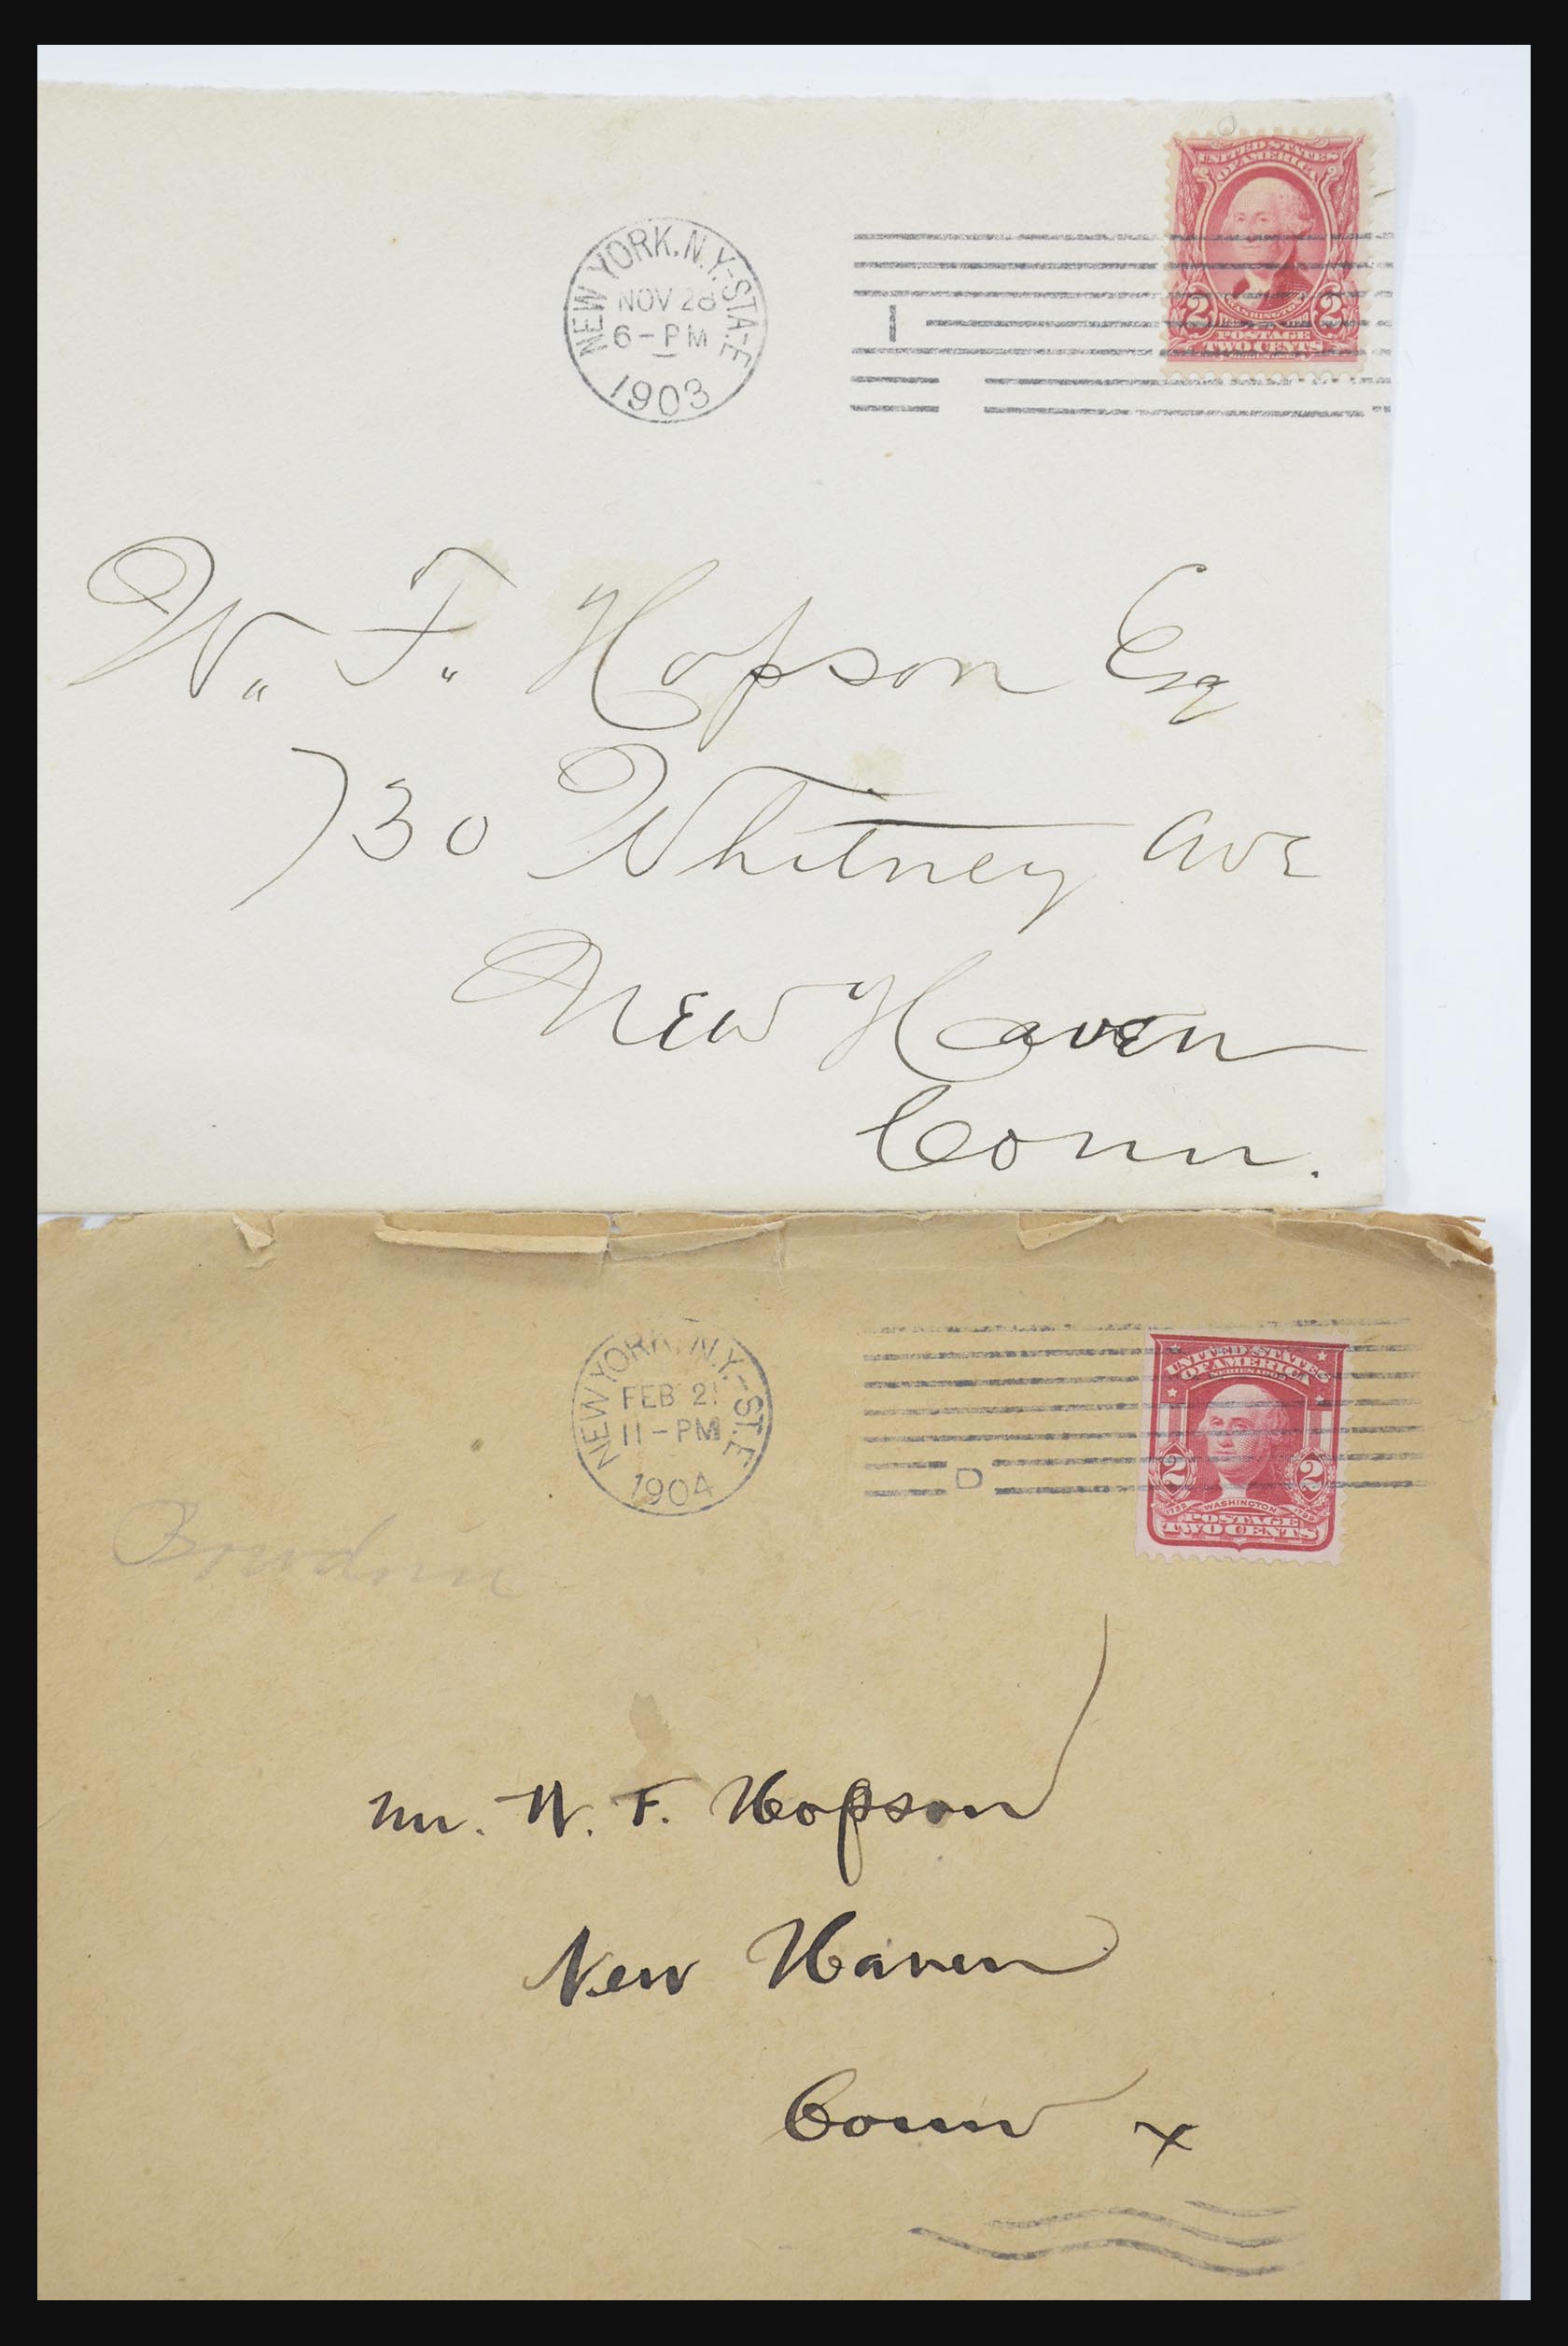 UNITED STATES
OF AMERICA
WASHINGTON
2 2
POSTAGE
TWO CENTS
NEW YORK, N.Y.-STA-E
NOV 28
6-PM
1903
1
W. F. Hopson Esq
730 Whitney Ave
New Haven
Conn.
UNITED STATES
OF AMERICA
SERIES 1902
2 2
1732 WASHINGTON 1799
POSTAGE
TWO CENTS
NEW YORK, N.Y.-ST.E
FEB 21
11-PM
1904
D
Mr. W. F. Hopson
New Haven
Conn x